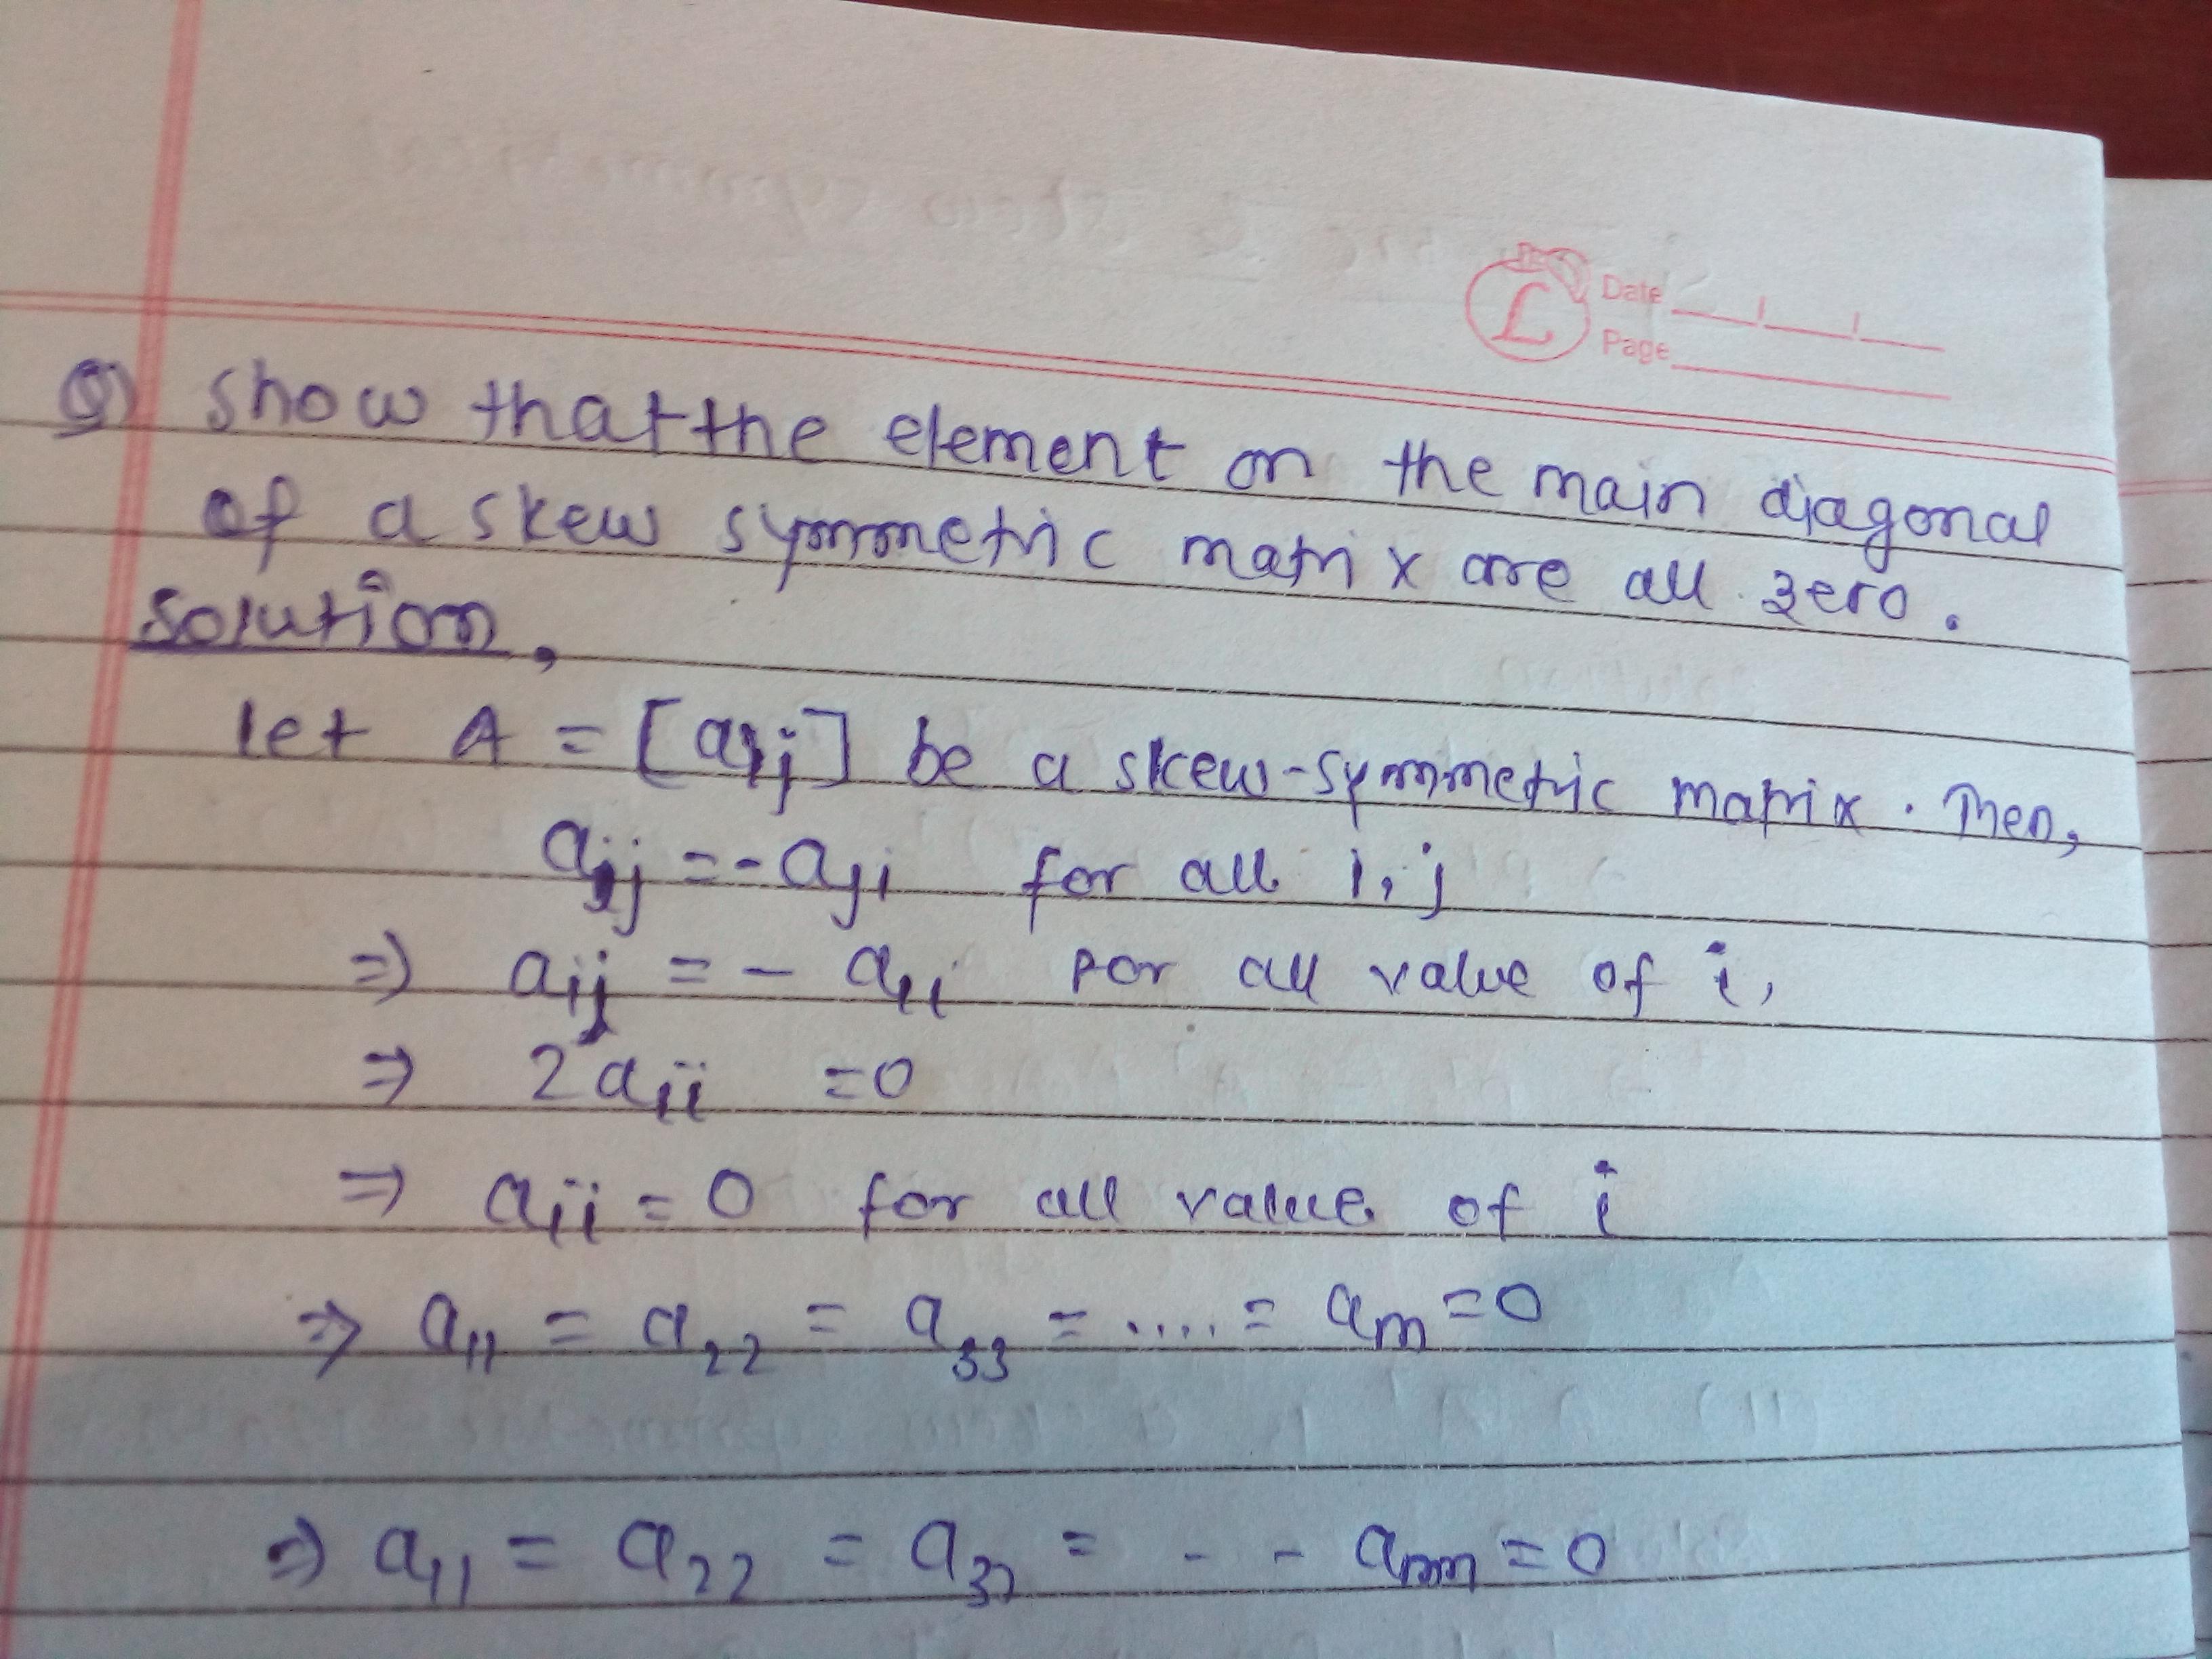 Date
Page
Q) Show that the element on the main diagonal
of a skew symmetric matrix are all zero.
Solution,
let A = [aij] be a skew-symmetric matrix. Then,
aij = - aji for all i, j
⇒ aij = - aii for all value of i,
⇒ 2aii = 0
⇒ aii = 0 for all value of i
⇒ a11 = a22 = a33 = .... = ann = 0
⇒ a11 = a22 = a33 = - - ann = 0